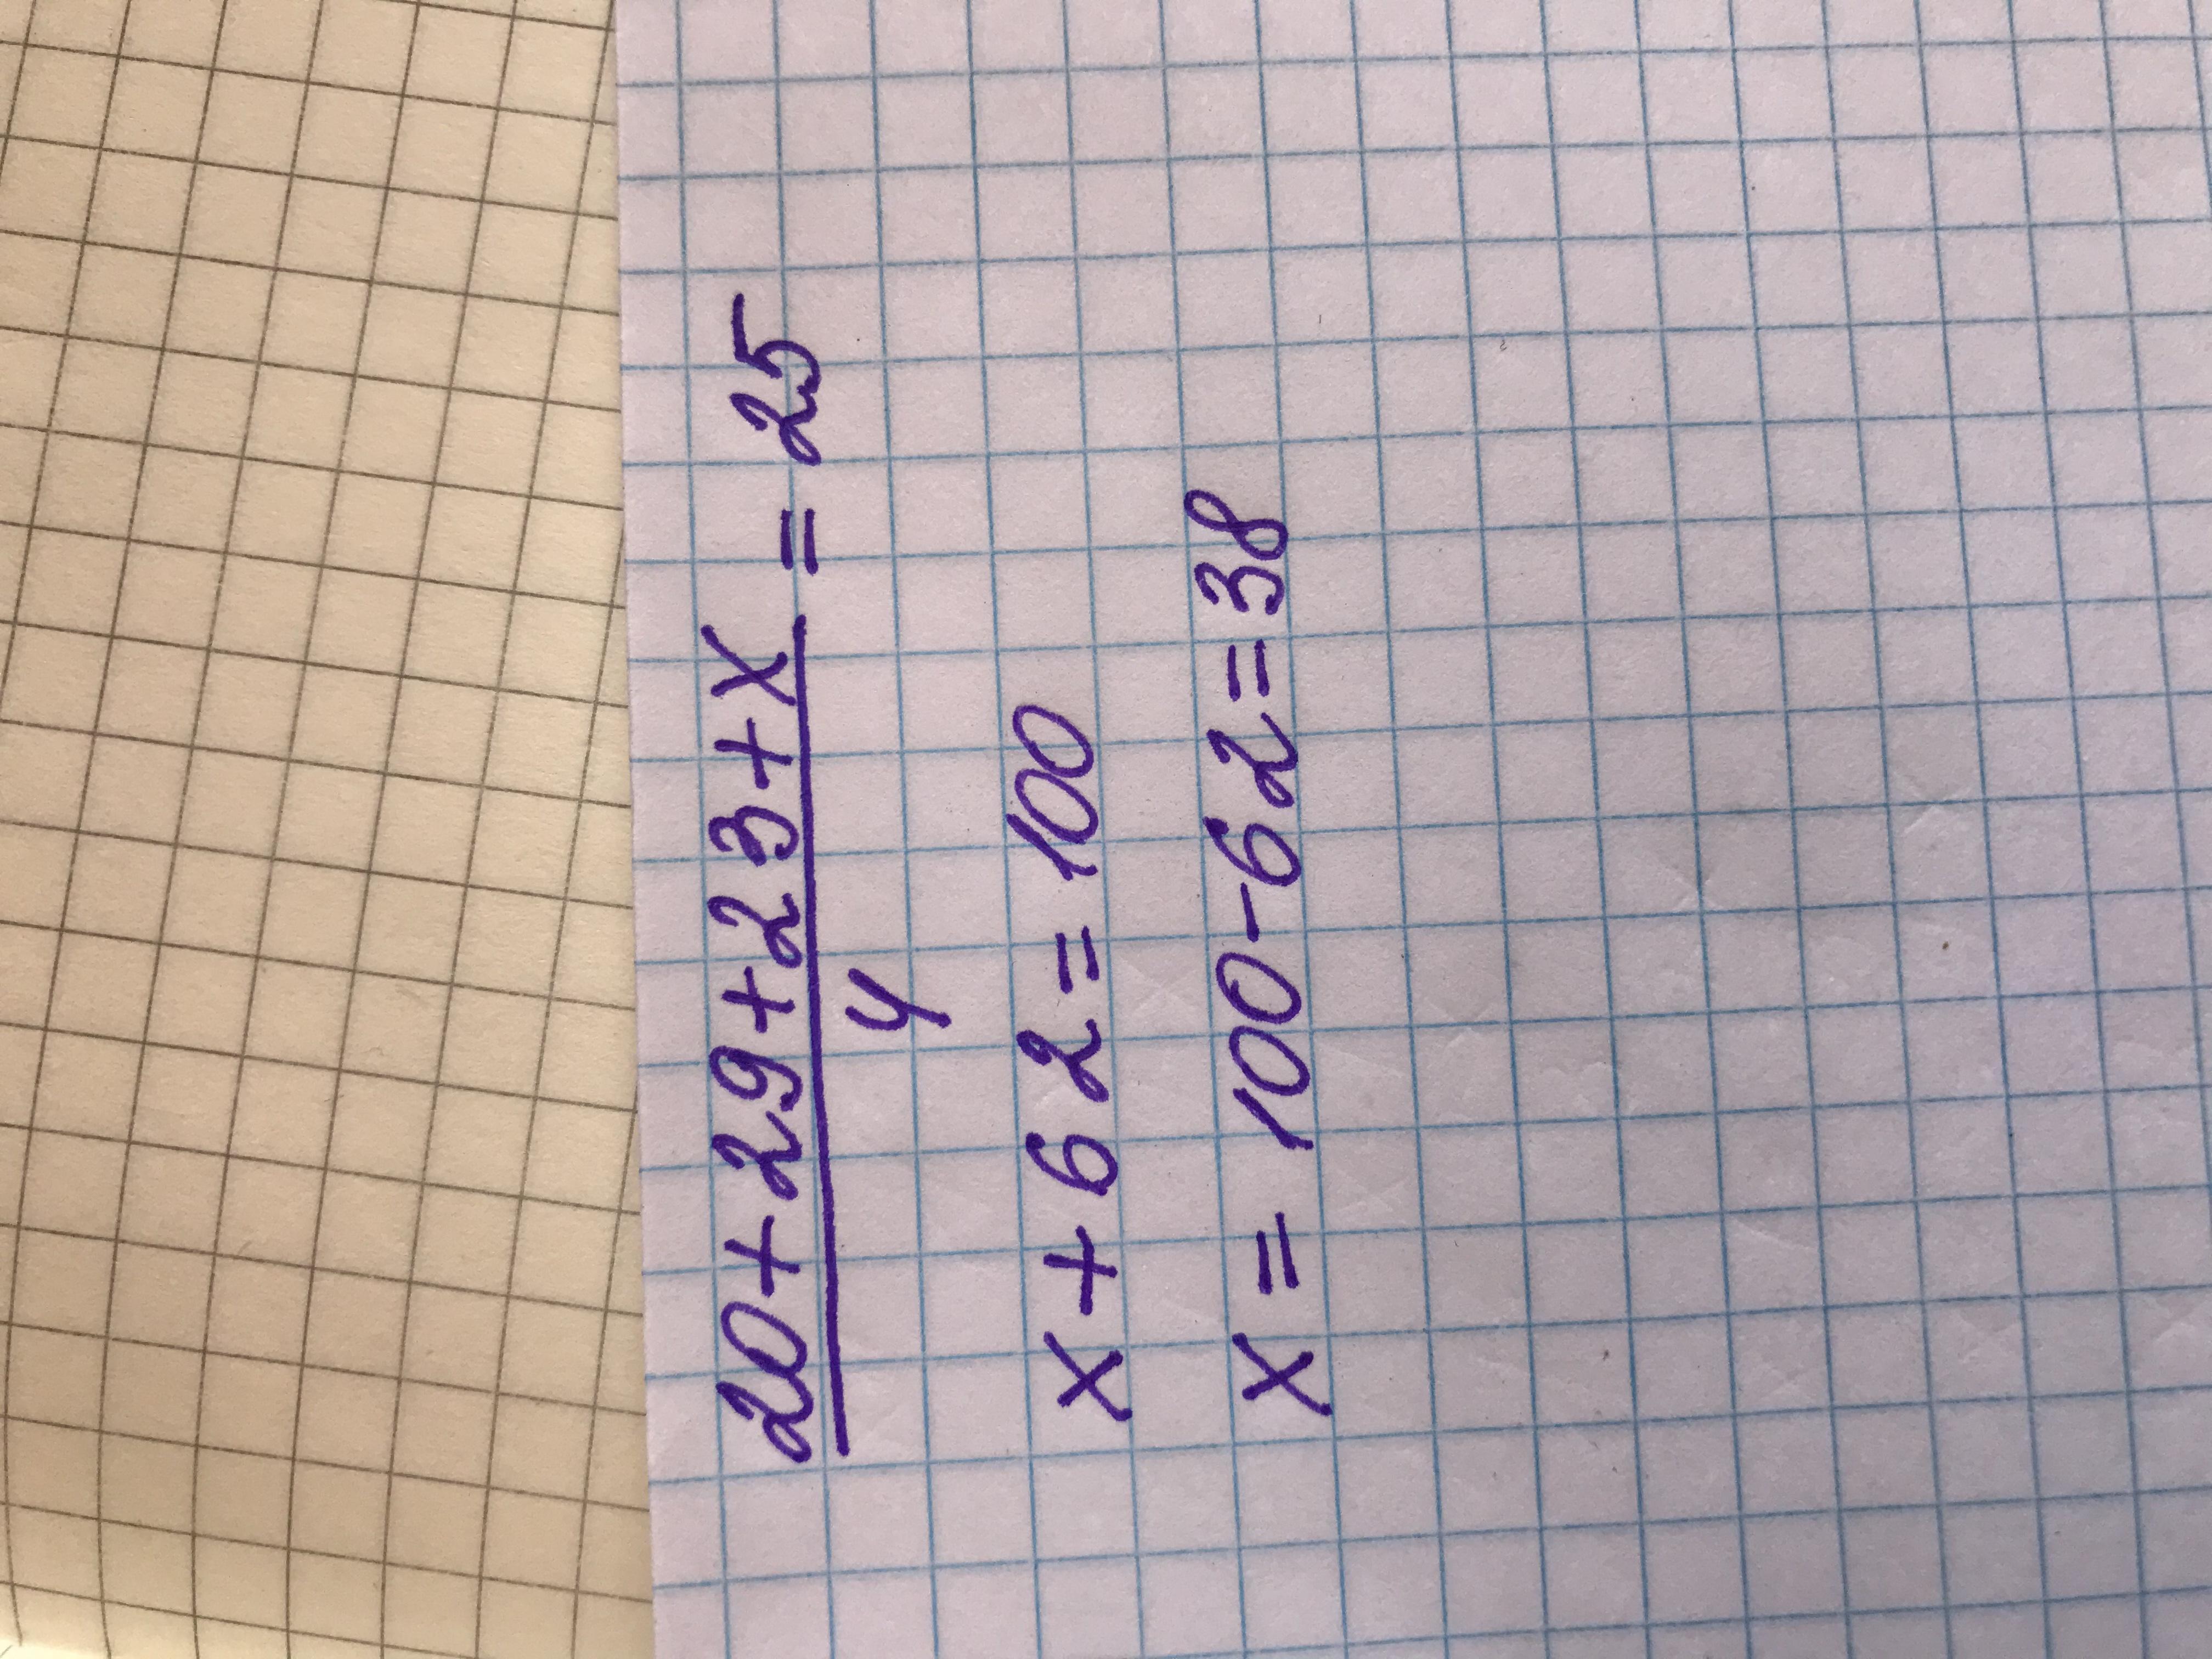 20+29+23+x = 25
4
x+62=100
x = 100-62=38